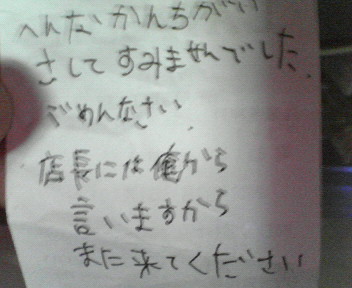 へんなかんちがい
さしてすみませんでした.
ごめんなさい.
店長には俺から
言いますから
また来てください